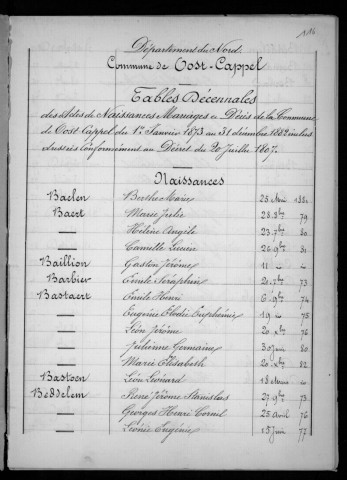 116
Département du Nord.
Commune de Oost-Cappel
Tables Décennales
des Actes de Naissances Mariages et Décès de la Commune
de Oost Cappel du 1er Janvier 1873 au 31 décembre 1882 inclus
dressées conformément au Décret du 20 Juillet 1807.
Naissances
Baelen Berthe Marie 25 Mai
Baert Marie Julie 28 8bre 79
— Hélène Angèle 23 7bre 80
— Camille Lucien 26 9bre 81
Baillion Gaston Jérôme 11
Barbier Emile Séraphin 20 7bre 73
Bastaert Emile Henri 6 9bre 74
— Eugénie Elodie Euphémie 19 75
— Léon Jérôme 20 Xbre 76
— Julienne Germaine 30 Juin 80
— Marie Elisabeth 20 Xbre 82
Bastoen Léon Léonard 18 Mars
Beddelem René Jérôme Stanislas 27 9bre 73
— Georges Henri Cornil 25 Avril 76
— Léonie Eugénie 15 Juin 77